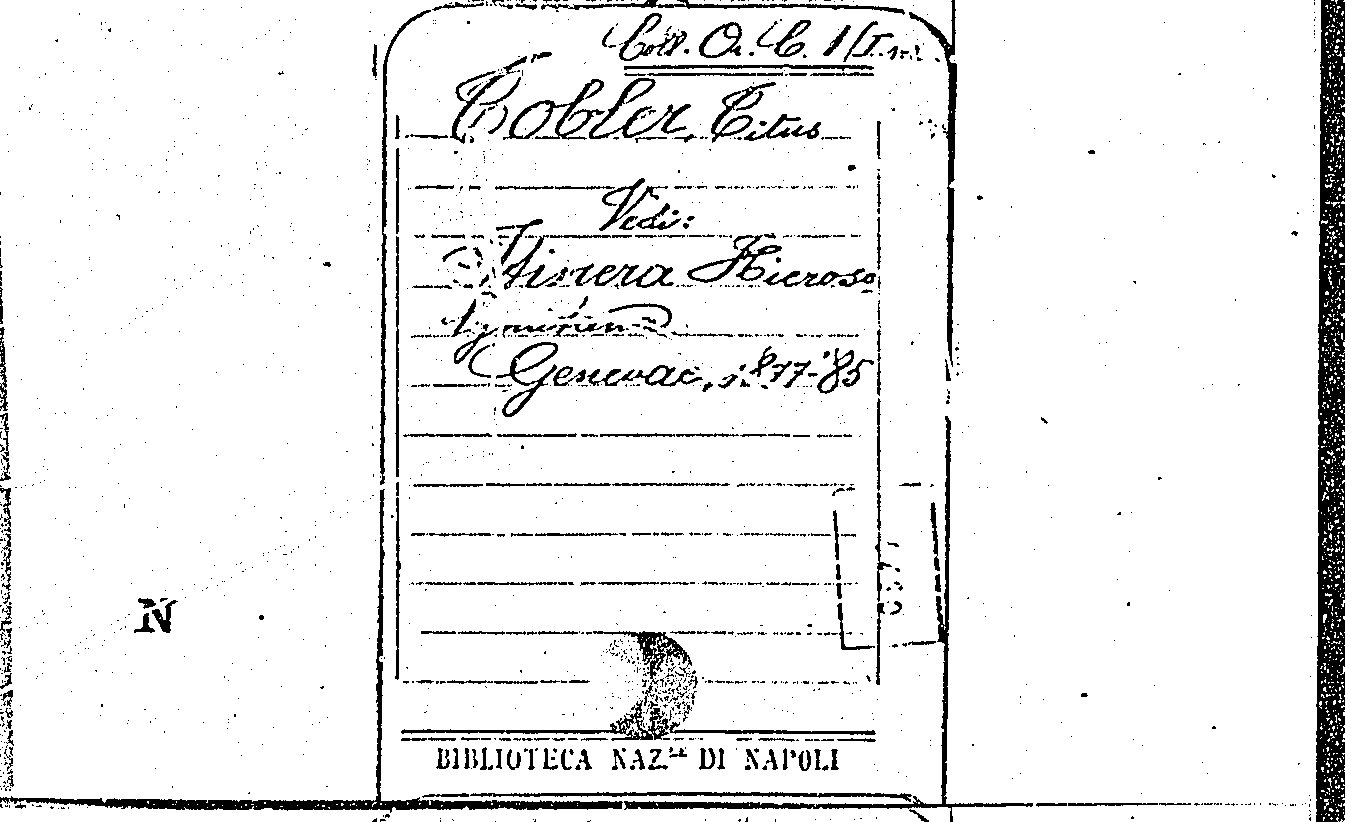 Coll. Or. C. 1/I
Tobler, Titus
Vedi:
Itinera Hieroso
lymitana
Genevae, 1877-'85
N
BIBLIOTECA NAZ.le DI NAPOLI